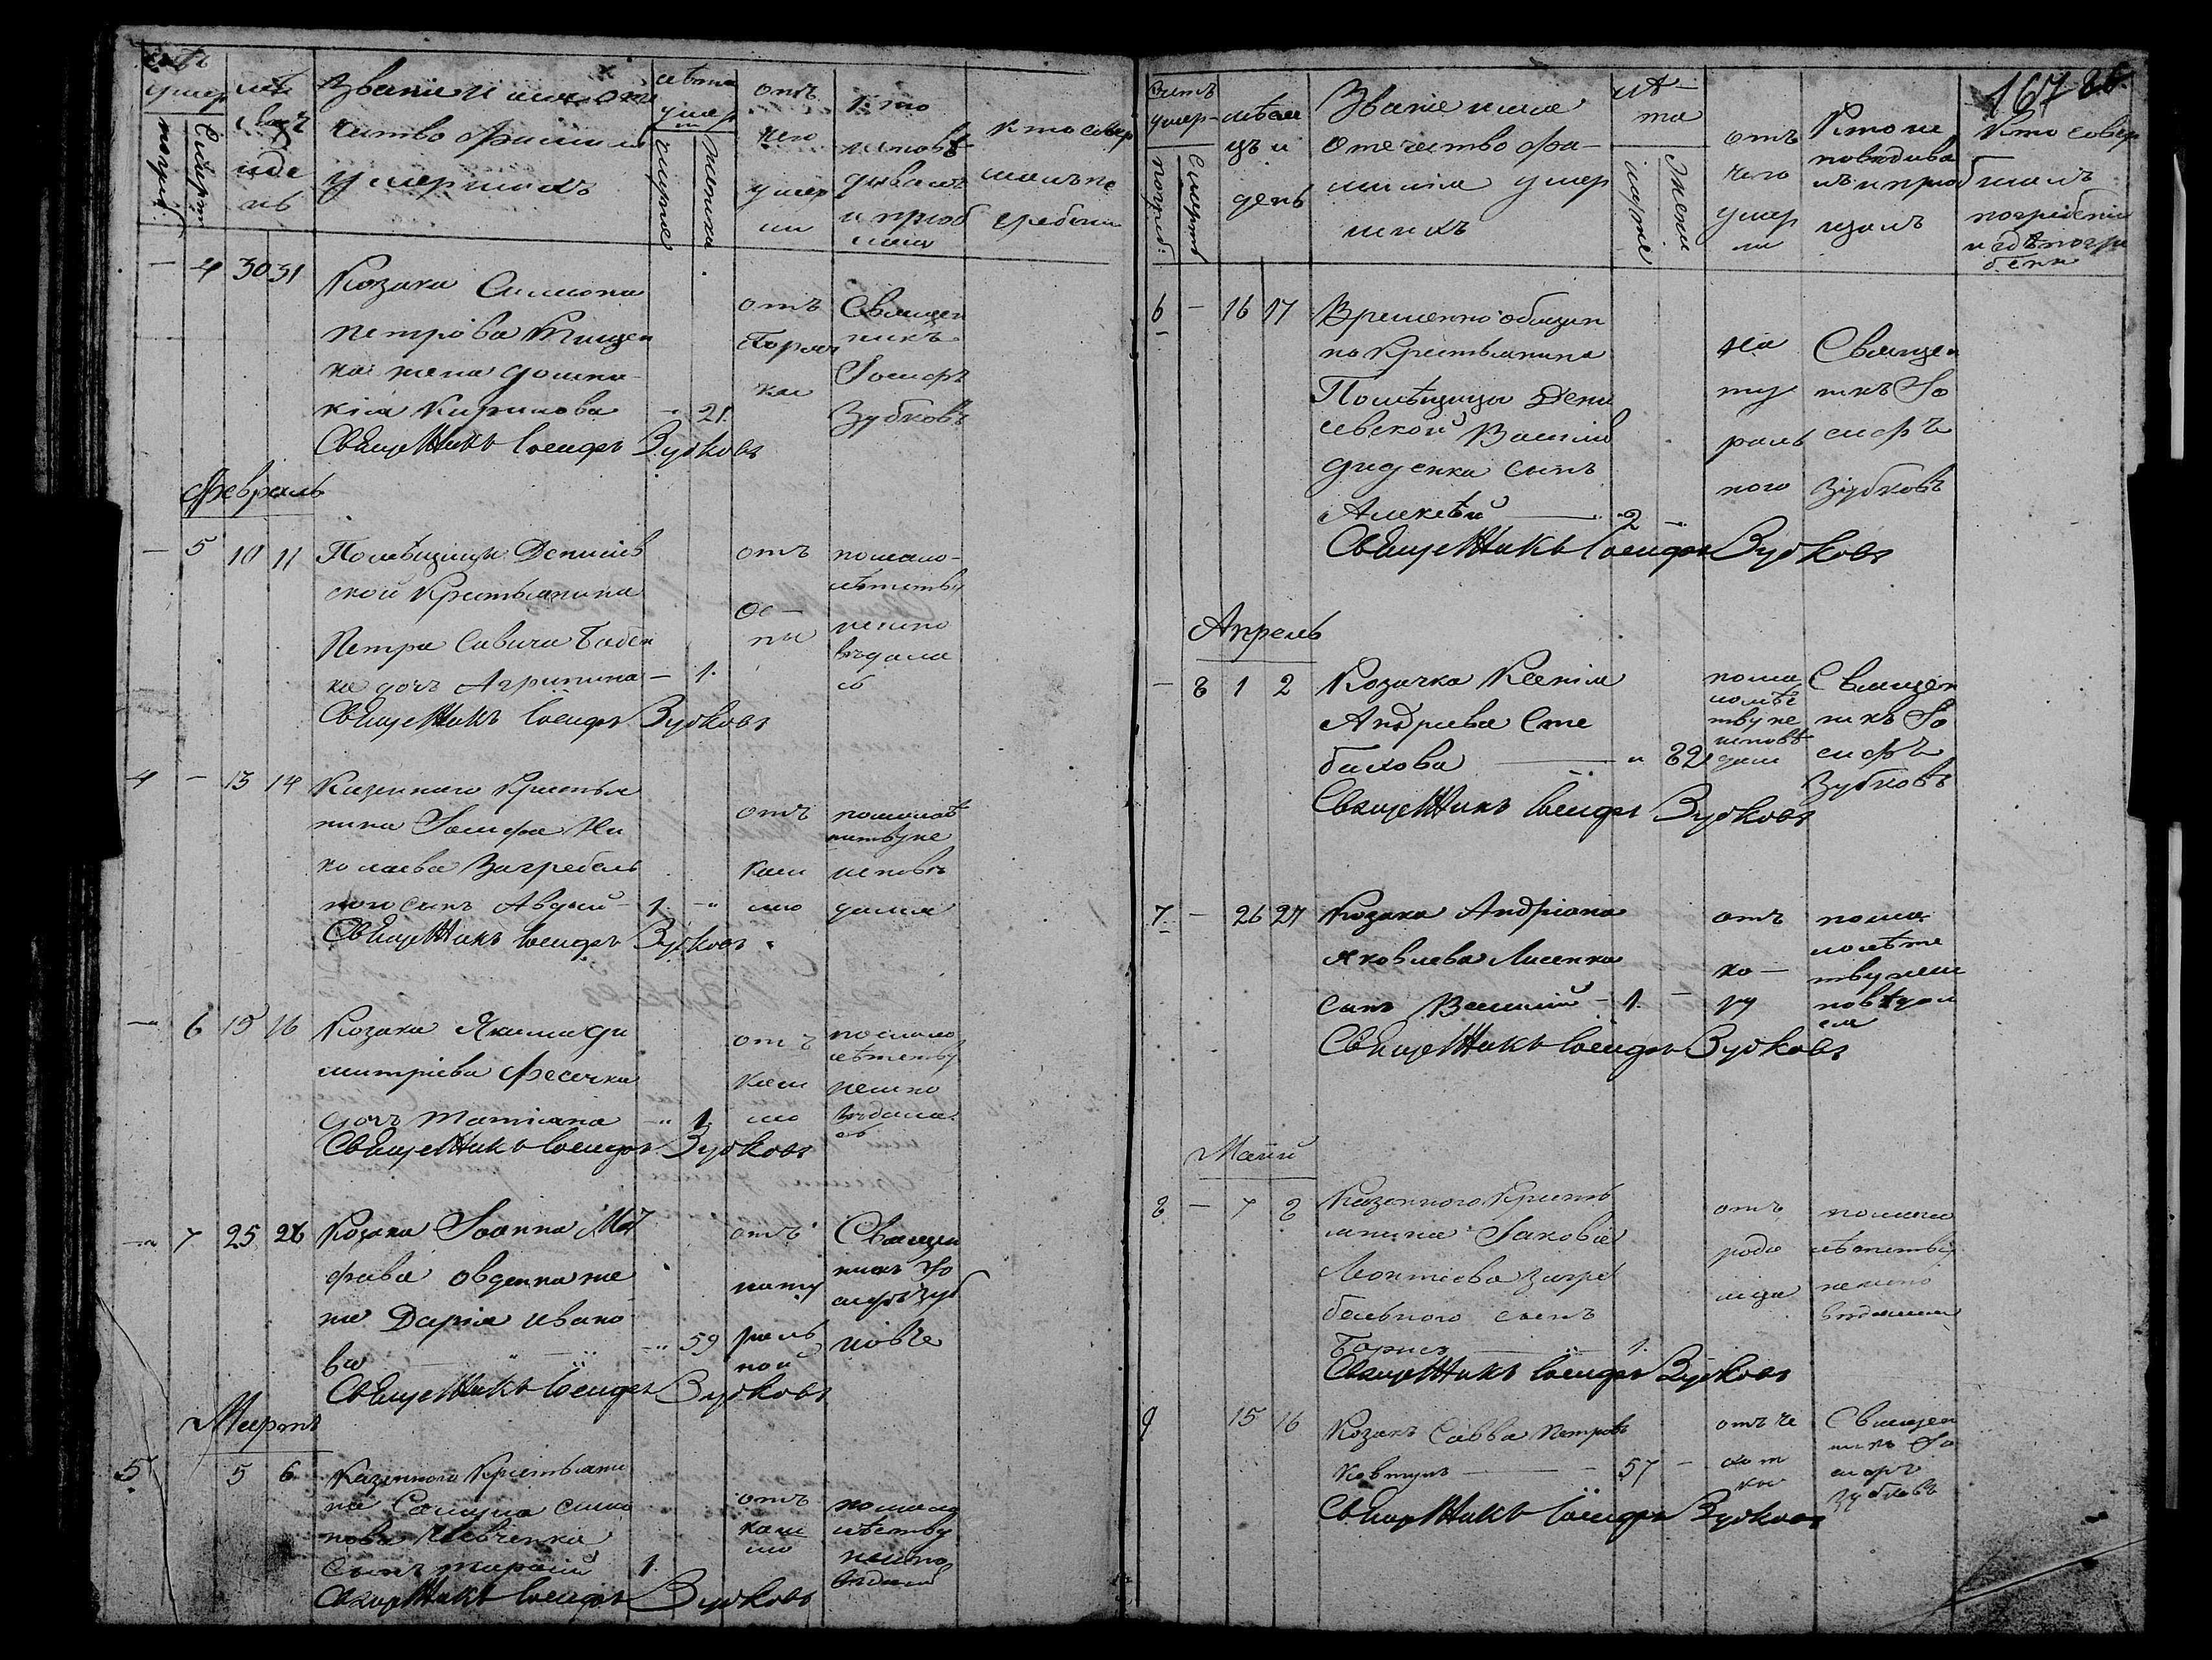 умер
Званіе и имя оте
чество фамилія
умершихъ
лѣта
умер
отъ
чего
умер
ли
Кто
исповѣ
дывалъ
и пріоб
щалъ
Кто совер
шалъ по
гребеніе
4 30 31
Козака Симиона
Петрова Тищен
ка жена
Кирилова 21.
отъ
Горяч
ки
Священ
никъ
Іосифъ
Зубковъ
Священникъ Іосифъ Зубковъ
Февраль
5 10 11
Помѣщицы Денисев
ской Крестьянина
Петра Савича Бабен
ка дочь Агрипина — 1.
отъ
Ос—
пы
по мало-
лѣтству
не испо
вѣдала
сь
Священникъ Іосифъ Зубковъ
4 — 13 14
Казенного Крестья
нина Іосифа Ни
колаева Загребель
ного сынъ Авдій 1
отъ
каш
лю
по малолѣ
тству не
исповѣ
дался
Священникъ Іосифъ Зубковъ
6 15 16
Козака Якима Ди
митріева Фесечка
дочь Татіана 1
отъ
каш
лю
по мало
лѣтству
не испо
вѣдала
сь
Священникъ Іосифъ Зубковъ
7 25 26
Козака Іоанна Мат
фѣева Овденка же
на Дарія Ивано
ва 59
отъ
нату
раль
ной
Священ
никъ Іо
сифъ Зуб
ковъ
Священникъ Іосифъ Зубковъ
Мартъ
5 5 6
Казенного Крестьяни
на Самуила Симо
нова Шевченка
сынъ Тарасій 1.
отъ
каш
лю
по мало
лѣтству
не испо
вѣдался
Священникъ Іосифъ Зубковъ
167 26
Счетъ
умер-
погреб.
Смерть
мѣся
цъ и
день
Званіе имя
отечество фа-
милія умер
шихъ
лѣ-
та
отъ
чего
умер
ли
Кто ис
повѣдыва
лъ и пріоб
щалъ
Кто совер
шалъ
погребеніе
и гдѣ погре
бенъ
6 — 16 17
Временно обязан
на Крестьянина
Помѣщицы Дени
севской Василія
Диденка сынъ
Алексѣй — 2 —
на
ту
раль
ного
Священ
никъ Іо
сифъ
Зубковъ
Священникъ Іосифъ Зубковъ
Апрель
— 8 1 2
Козачка Ксенія
Андреева Сте
бакова — 82
по ма
лолѣт
тву не
исповѣ
дали
Священ
никъ Іо
сифъ
Зубковъ
Священникъ Іосифъ Зубковъ
7 — 26 27
Козака Андріана
Яковлева Лисенка
сынъ Василій — 1. —
отъ
ко—
ру
по ма
лолѣт
тву не ис
повѣдал
ся
Священникъ Іосифъ Зубковъ
Маій
8 — 7 8
Казенного Кресть
янина Іаковіа
Леонтіева Загре
бельного сынъ
Борисъ 1.
отъ
роди
мца
по мало
лѣтству
не испо
вѣдался
Священникъ Іосифъ Зубковъ
9 15 16
Козакъ Савва Петровъ
Ковтунъ — 57 —
отъ ча
хот
ки
Священ
никъ Іо
сифъ
Зубковъ
Священникъ Іосифъ Зубковъ